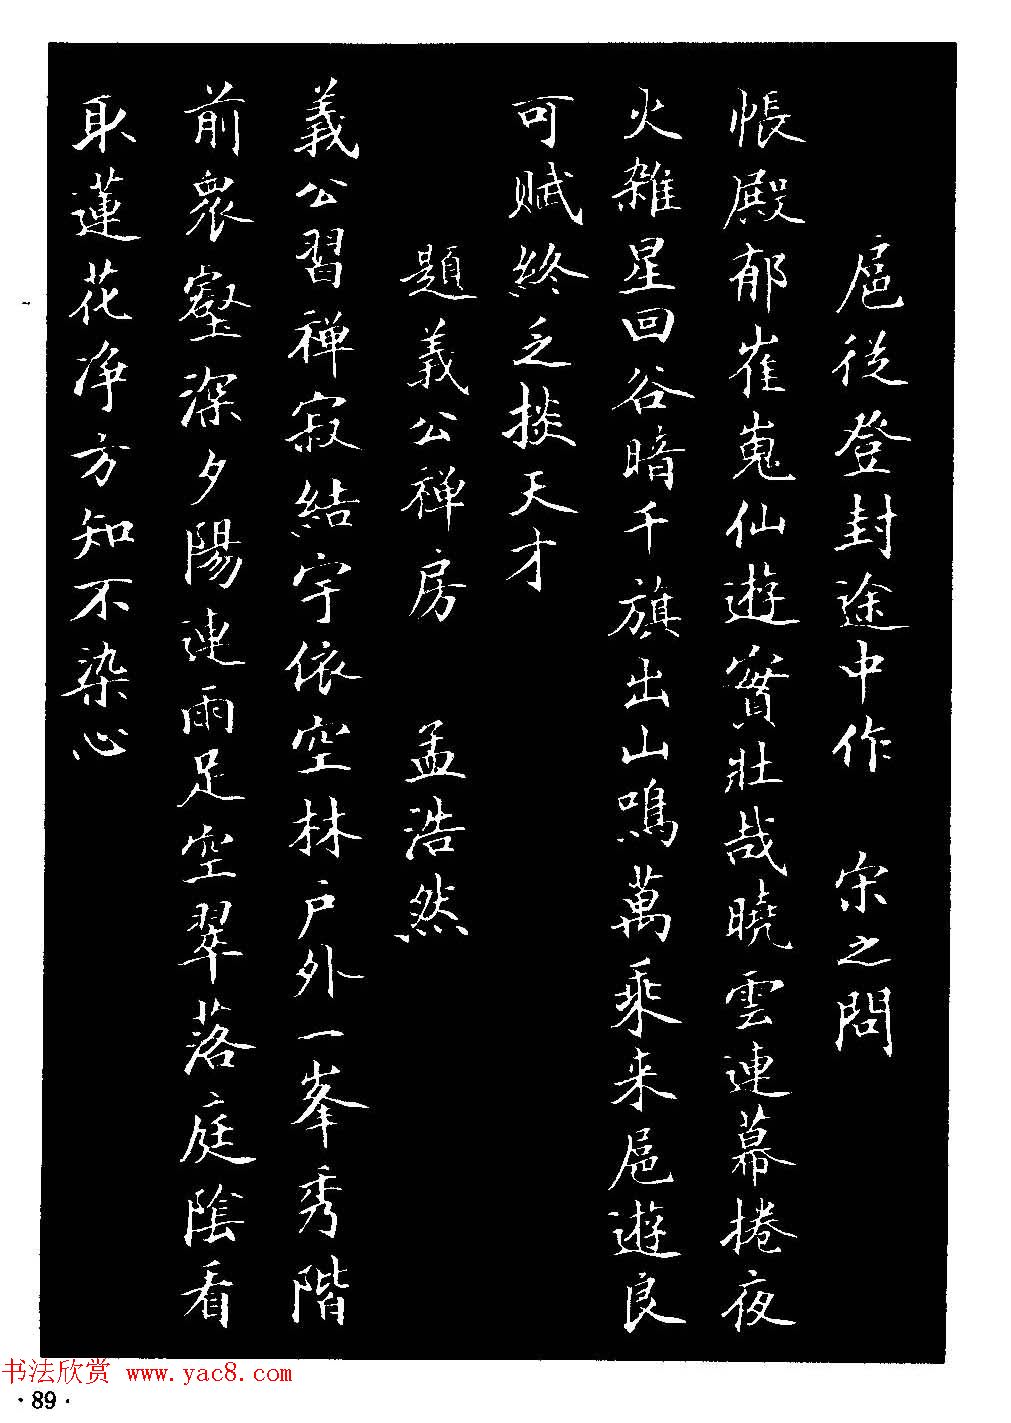 扈從登封途中作　宋之問
帳殿郁崔嵬仙遊實壯哉曉雲連幕捲夜
火雜星回谷暗千旗出山鳴萬乘来扈遊良
可赋終乏掞天才
題義公禅房　孟浩然
義公習禅寂結宇依空林戶外一峯秀階
前衆壑深夕陽連雨足空翠落庭陰看
取蓮花净方知不染心
书法欣赏 www.yac8.com
·89·